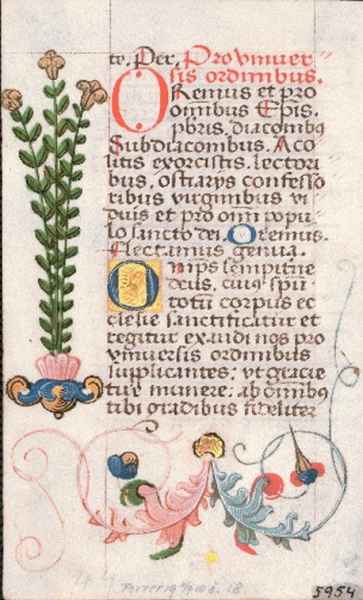 te. Per. Pro vniuer
sis ordinibus.
ORemus et pro
omnibus Epis.
pbris, diaconibꝰ
Subdiaconibus. Aco
litis exorcistis. lectori
bus. ostiarijs confesso
ribus virginibus vi
duis et pro omni popu
lo sancto dei. Oremus.
Flectamus genua.
Omps sempiterne
deus. cuiꝰ spiri
totum corpus ec
clesie sanctificatur et
regitur exaudi nos pro
vniuersis ordinibus
supplicantes: vt gracie
tue munere: ab omnibꝰ
tibi gradibus fideliter
5954